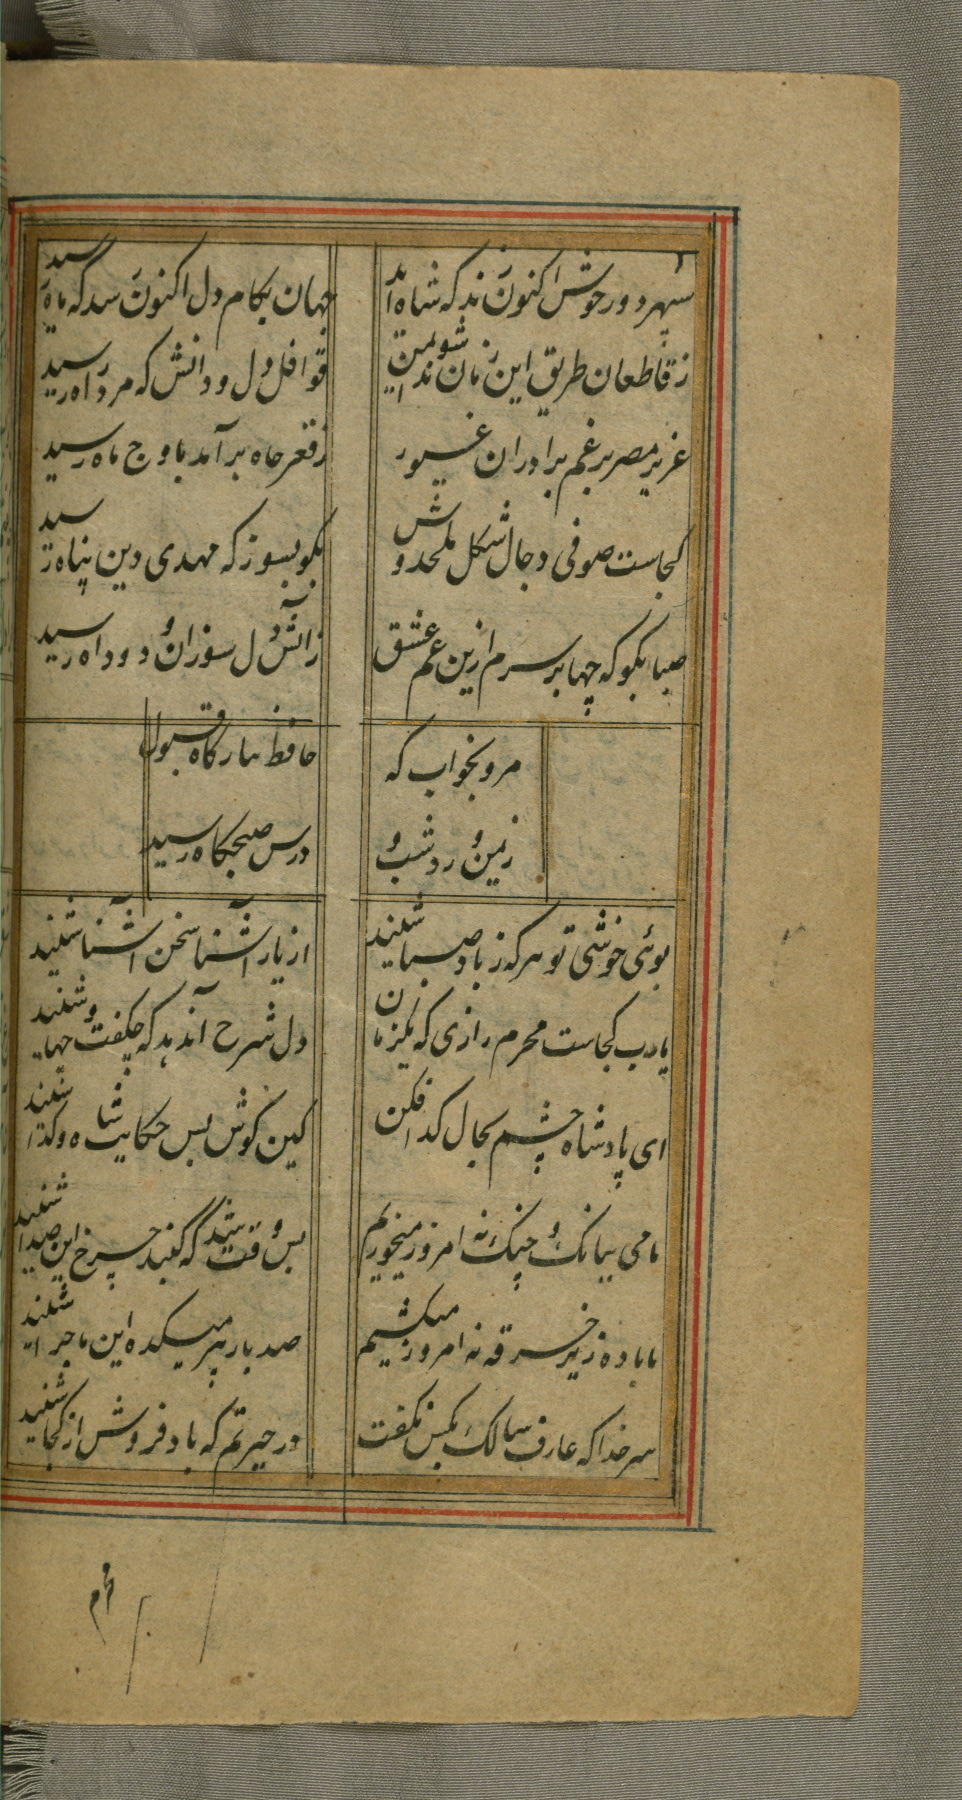 سپهر دور خوش اکنون زند که شاه آمد
جهان بکام دل اکنون رسد که ماه رسید
ز قاطعان طریق این زمان شوند ایمن
قوافل دل و دانش که مرد راه رسید
عزیز مصر برغم برادران غیور
ز قعر چاه برآمد باوج ماه رسید
کجاست صوفی دجال شکل ملحدوش
بکو بسوز که مهدی دین پناه رسید
صبا بکو که چها بر سرم ازین غم عشق
ز آتش دل سوزان و دود اه رسید
مرو بخواب که
حافظ ببارکاه قبول
زمین ورد شب و
درس صبحکاه رسید
بوئی خوشی تو هر که ز باد صبا شنید
از یار آشنا سخن آشنا شنید
یارب کجاست محرم رازی که یکزمان
دل شرح آن دهد که چکفت و چها شنید
ای پادشاه چشم بحال کدا فکن
کین کوش بس حکایت شاه و کدا شنید
ما می ببانک چنک نه امروز میخوریم
بس وقت شد که کنبد چرخ این صدا شنید
ما باده زیر خرقه نه امروز میکشیم
صد بار پیر میکده این ماجرا شنید
سر خدا که عارف سالک بکس نکفت
در حیرتم که باد فروش از کجا شنید